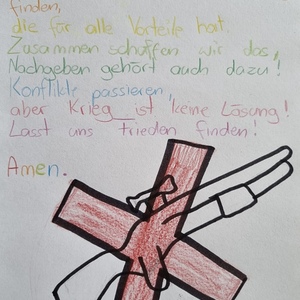 finden,
die für alle Vorteile hat.
Zusammen schaffen wir das,
Nachgeben gehört auch dazu!
Konflikte passieren,
aber Krieg ist keine Lösung!
Lasst uns frieden finden!
Amen.